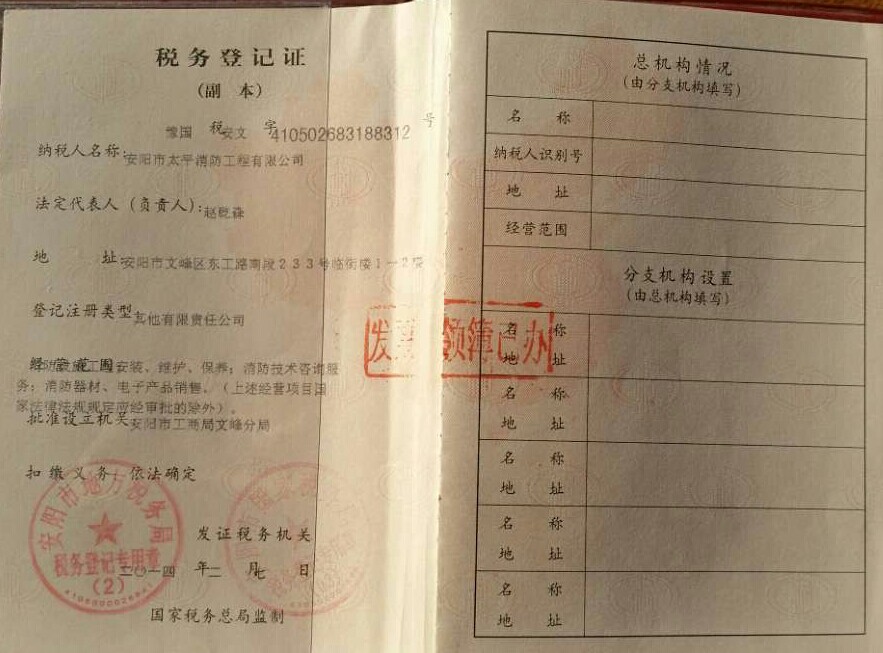 税务登记证
(副 本)
豫国 税 安文 字 410502683188312 号
纳税人名称:安阳市太平消防工程有限公司
法定代表人(负责人):赵乾森
地 址:安阳市文峰区东工路南段233号临街楼1-2楼
登记注册类型:其他有限责任公司
经营范围 工程安装、维护、保养;消防技术咨询服
务;消防器材、电子产品销售。(上述经营项目国
家法律法规规定应经审批的除外)。
批准设立机关:安阳市工商局文峰分局
扣缴义务:依法确定
发证税务机关
二〇一四 年 二 月 七 日
国家税务总局监制
安阳市地方税务局
税务登记专用章
(2)
发票领簿已办
总机构情况
(由分支机构填写)
名 称
纳税人识别号
地 址
经营范围
分支机构设置
(由总机构填写)
名 称
地 址
名 称
地 址
名 称
地 址
名 称
地 址
名 称
地 址